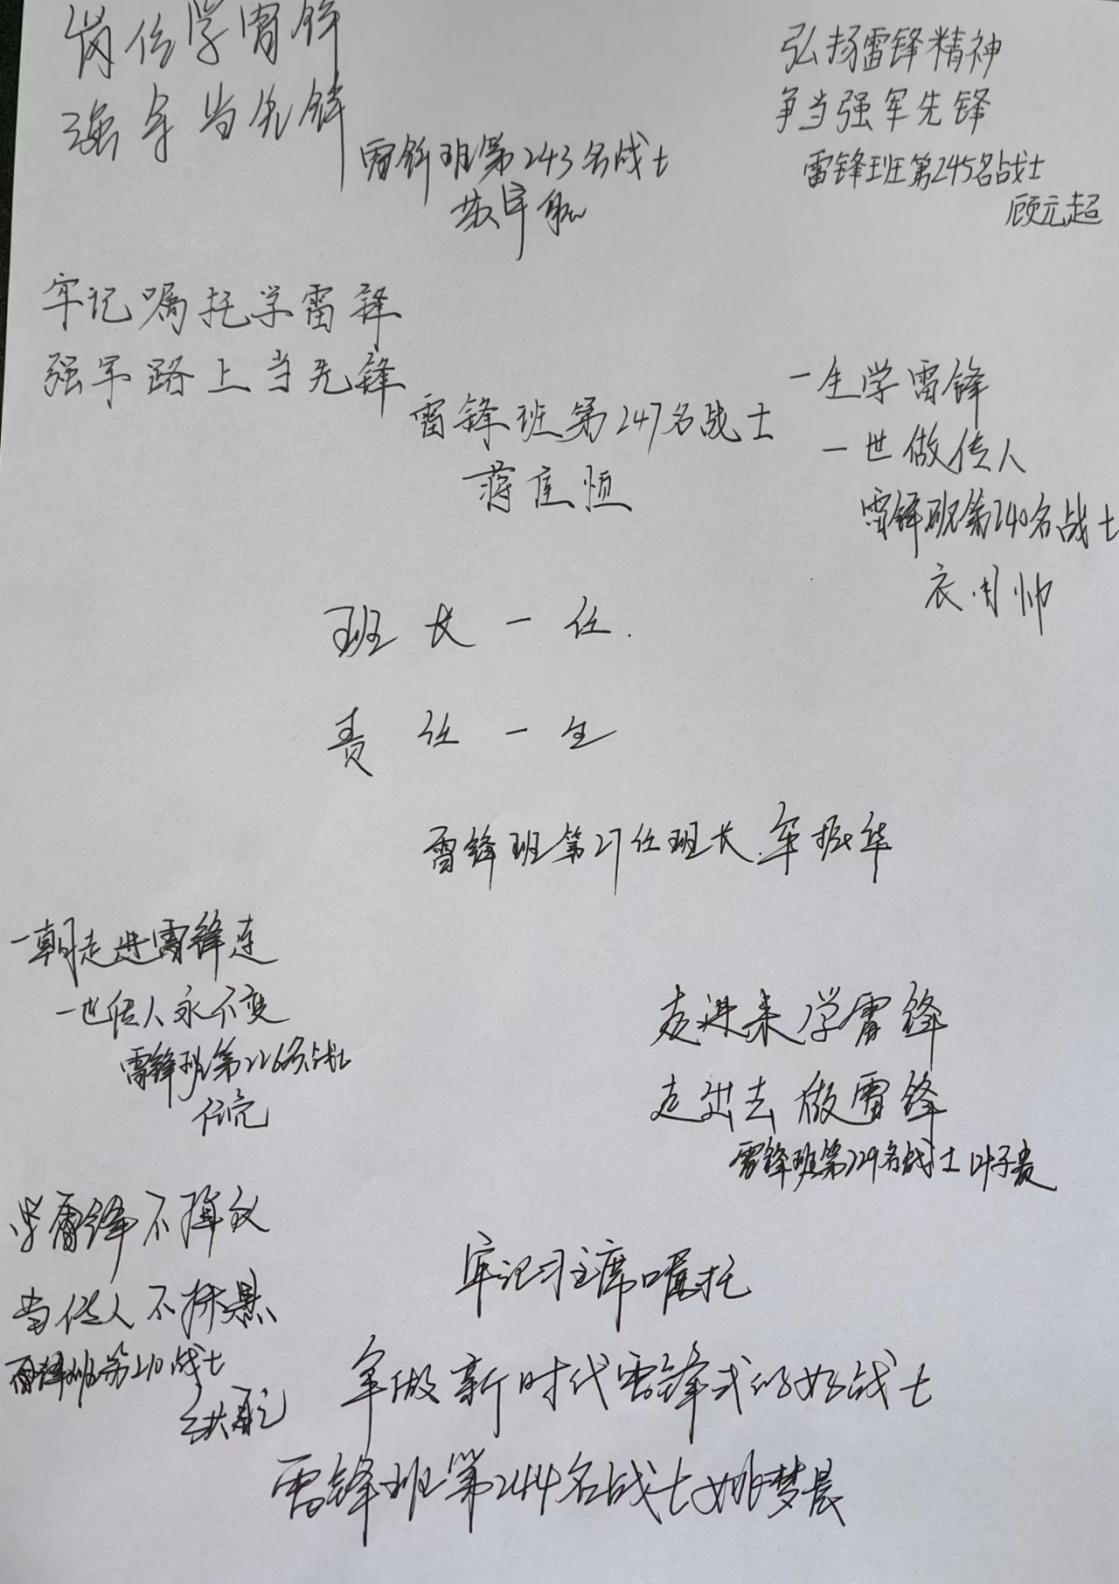 岗位学雷锋
强军当先锋
雷锋班第243名战士
弘扬雷锋精神
争当强军先锋
雷锋班第245名战士
顾元超
牢记嘱托学雷锋
强军路上当先锋
雷锋班第247名战士
蒋庭恒
一生学雷锋
一世做传人
雷锋班第240名战士
衣明帅
班长一任
责任一生
雷锋班第27任班长 牟振华
一朝走进雷锋连
一世传人永不变
雷锋班第226名战士
任亮
走进来学雷锋
走出去做雷锋
雷锋班第229名战士叶子贵
学雷锋不择段
当传人不抹黑
雷锋班第210战士
牢记习主席嘱托
争做新时代雷锋式的好战士
雷锋班第244名战士姚梦晨